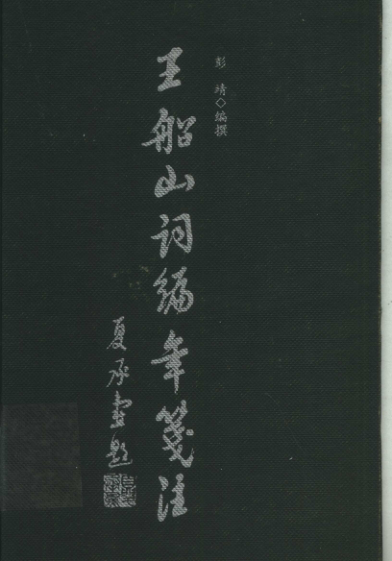 彭靖◇编撰
王船山词编年笺注
夏承焘题